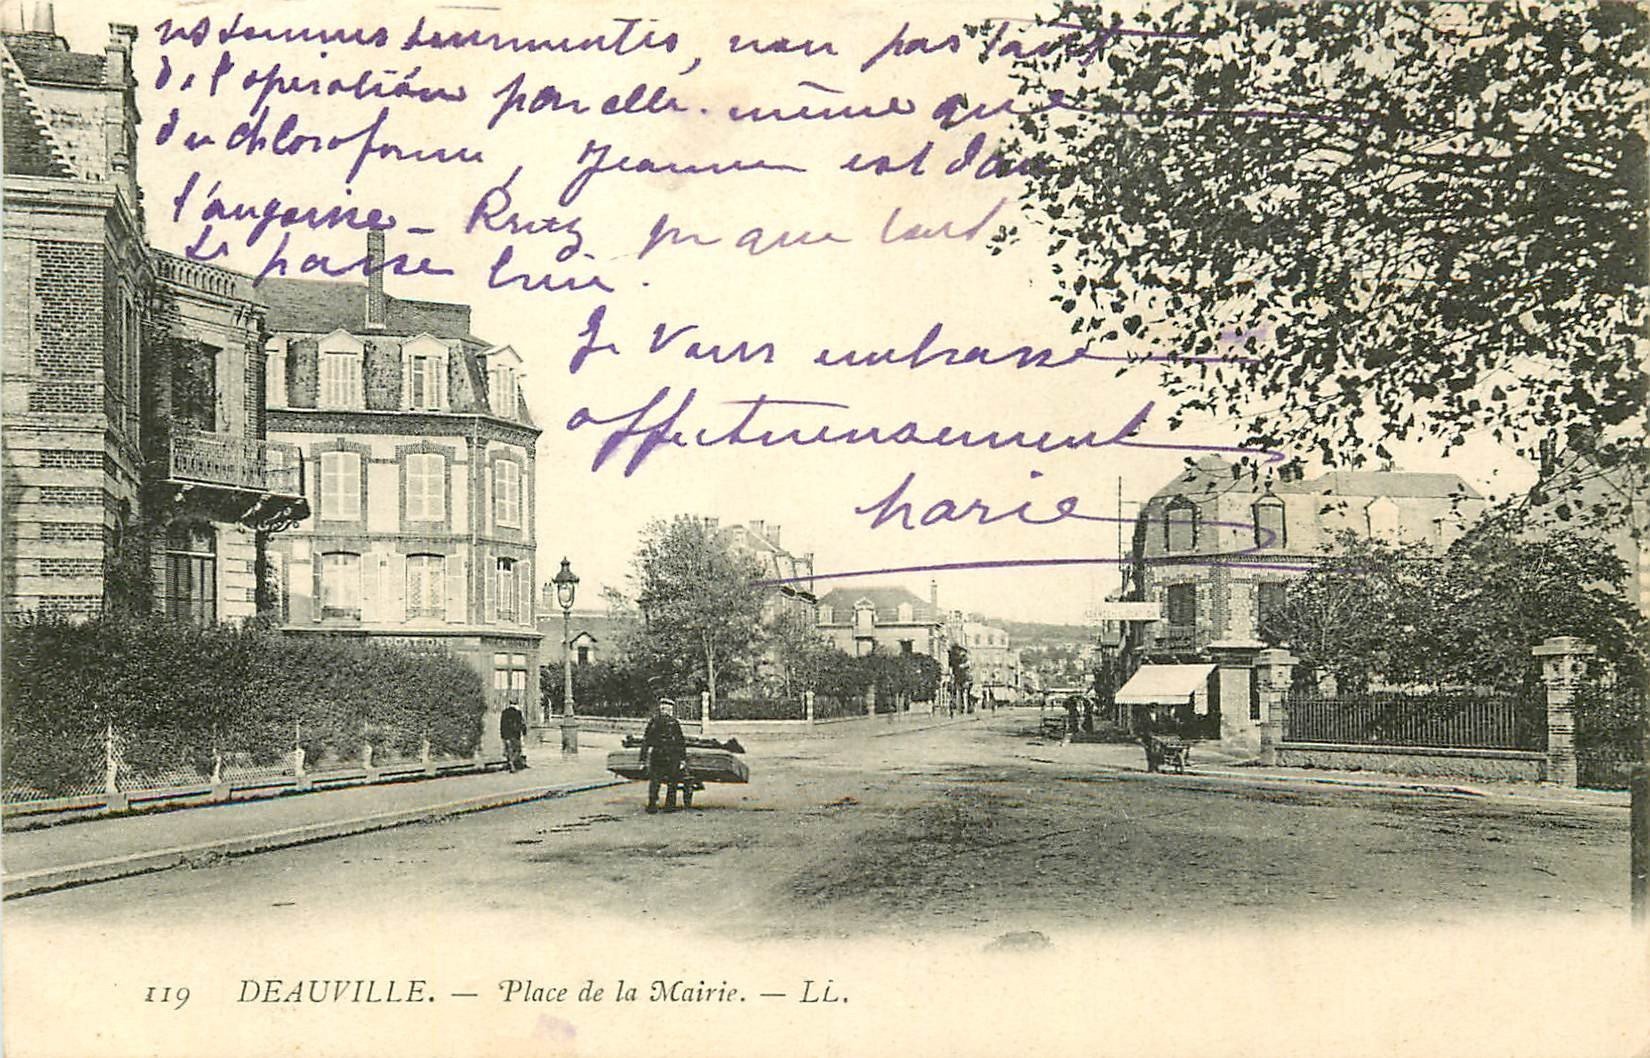 ns sommes tourmentés, non pas tant
de l'opération par elle-même que
du chloroforme, Jeanne est dans
l'angoisse – Priez pr que tout
se passe bien.
Je vous embrasse
affectueusement
Marie
LOCATION
119 DEAUVILLE. — Place de la Mairie. — LL.